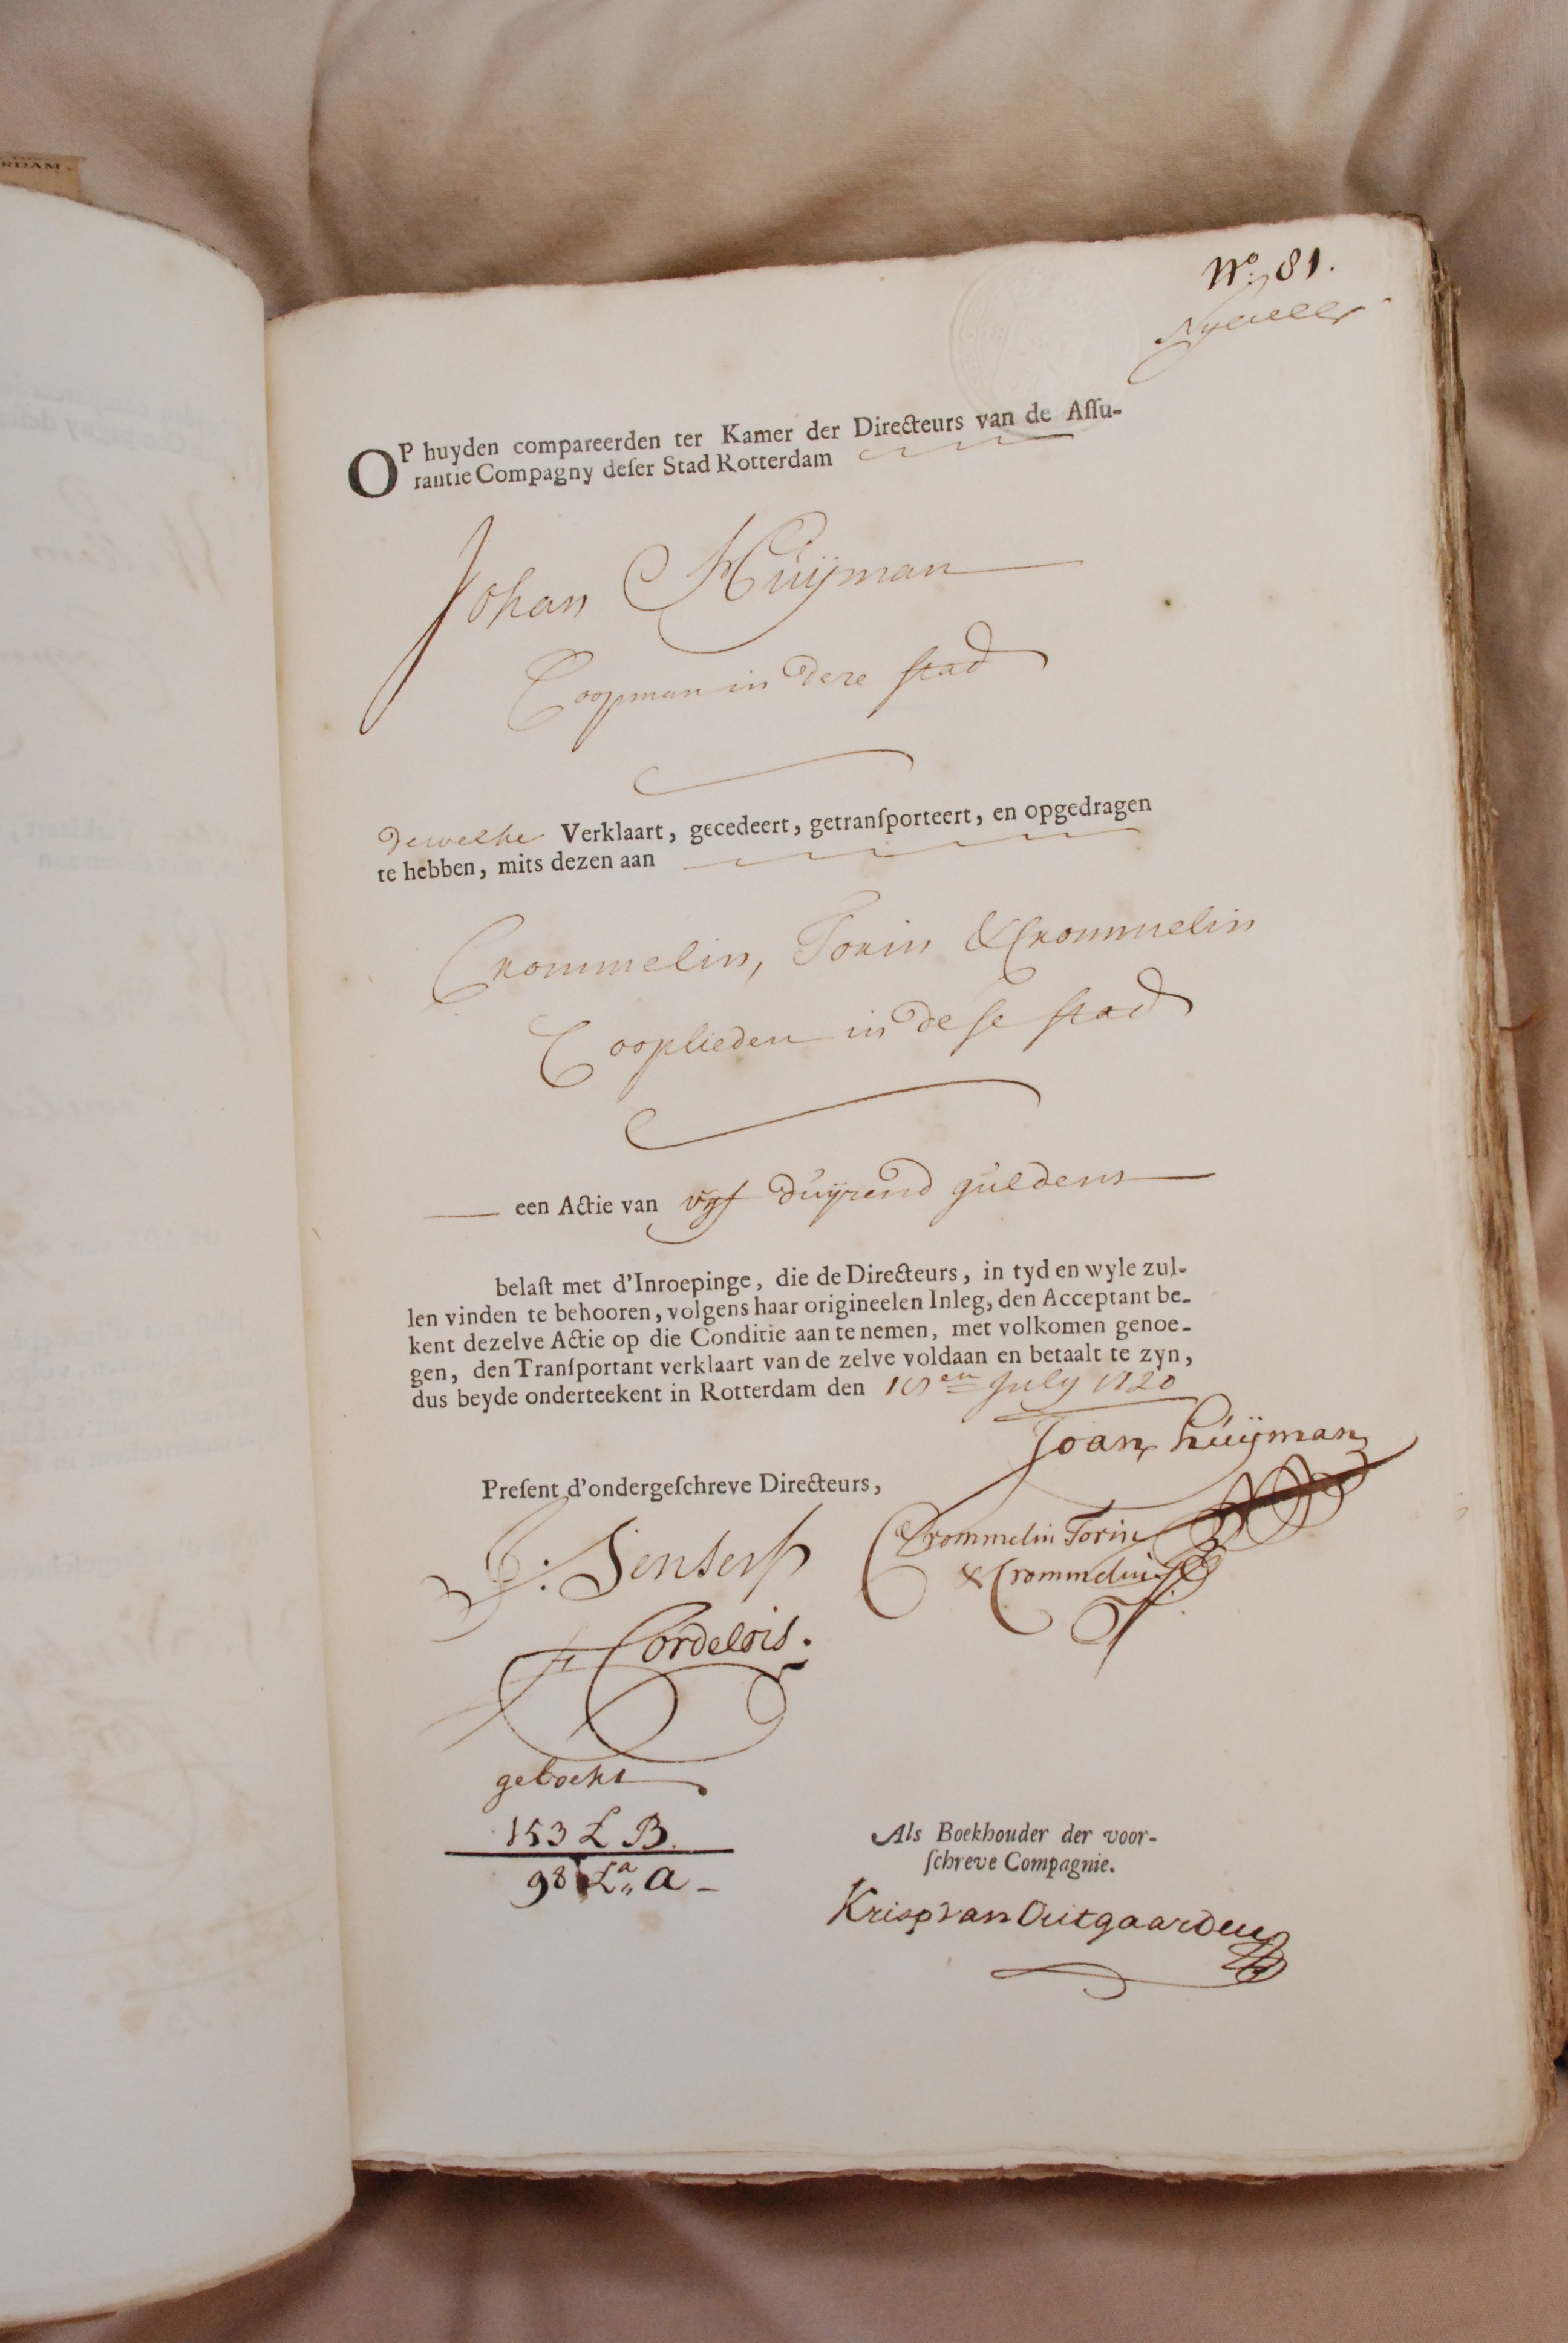 RDAM.
No. 81.
OP huyden compareerden ter Kamer der Directeurs van de Aſſu-
rantie Compagny deſer Stad Rotterdam
Johan Huijman
Coopman in dese stad
dewelke Verklaart, gecedeert, getranſporteert, en opgedragen
te hebben, mits dezen aan
Crommelin, Torin & Crommelin
Cooplieden in dese stad
een Actie van vijf duijsend guldens
belaſt met d'Inroepinge, die de Directeurs, in tyd en wyle zul-
len vinden te behooren, volgens haar origineelen Inleg, den Acceptant be-
kent dezelve Actie op die Conditie aan te nemen, met volkomen genoe-
gen, den Tranſportant verklaart van de zelve voldaan en betaalt te zyn,
dus beyde onderteekent in Rotterdam den July 1720
Joan Huijman
Preſent d'ondergeſchreve Directeurs,
Crommelin Torin
& Crommelin
Senserf
Cordelois.
geboekt
153 L B.
98 La A
Als Boekhouder der voor-
ſchreve Compagnie.
Krisp van Outgaarden